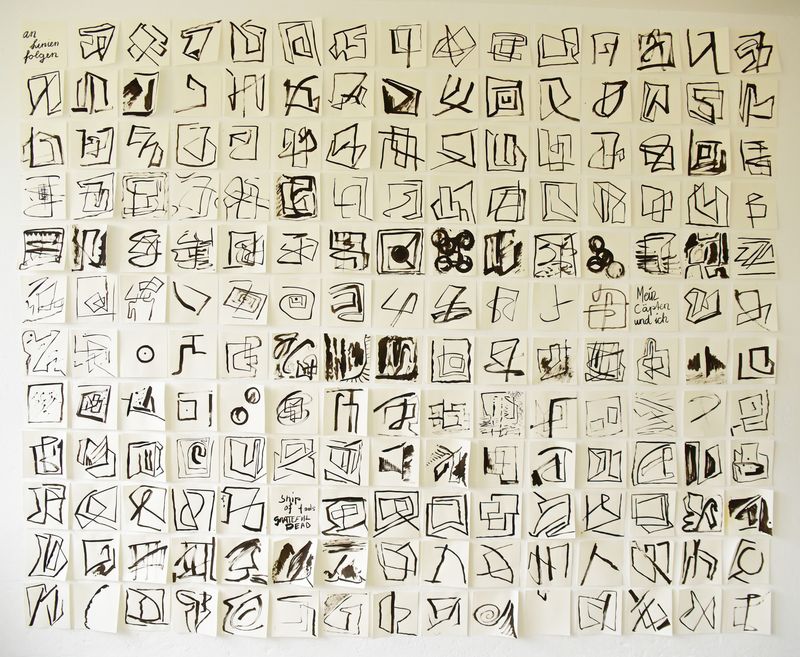 an
denen
folgen
Mein
Capten
und ich
Ship
of fools
GRATEFUL
DEAD